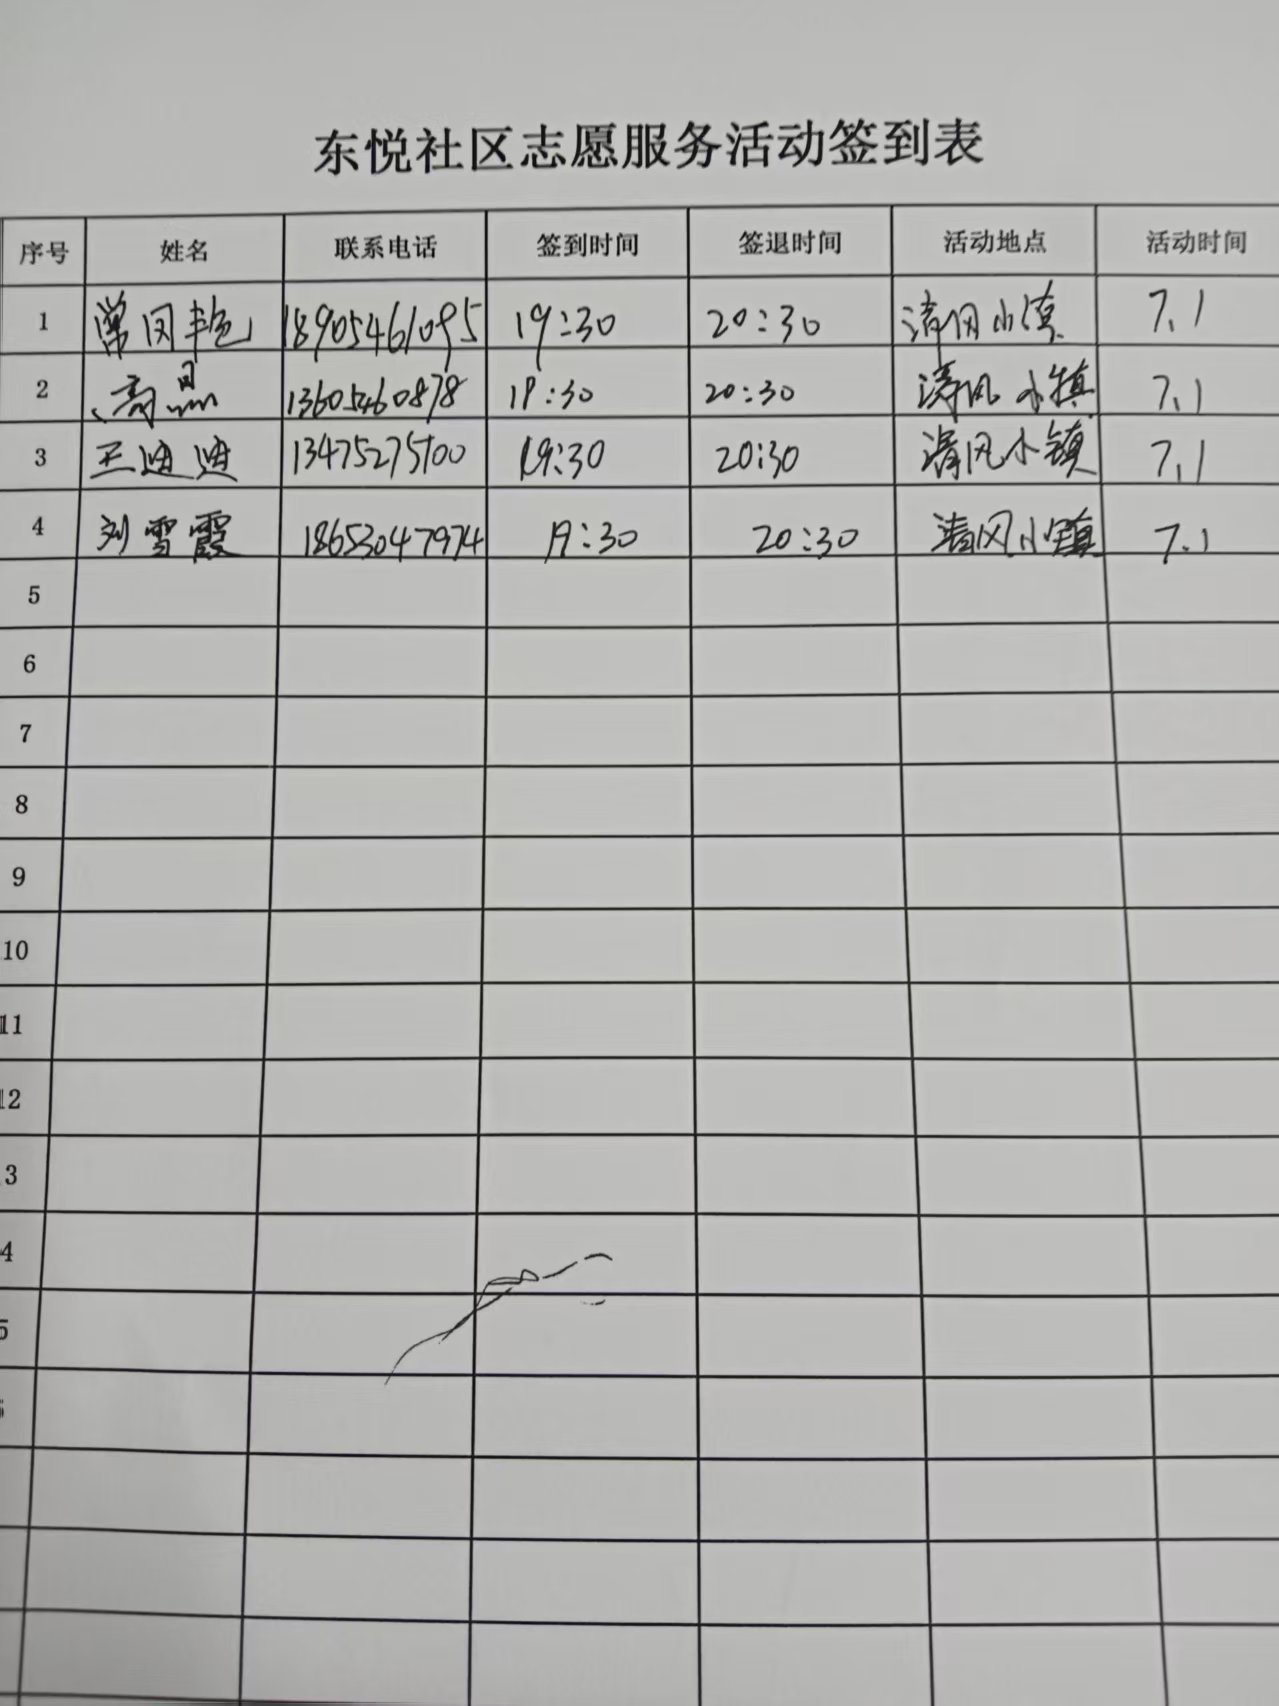 东悦社区志愿服务活动签到表
序号 姓名 联系电话 签到时间 签退时间 活动地点 活动时间
1 常风艳 18905461095 19:30 20:30 清风小镇 7.1
2 高晶 13605460878 19:30 20:30 清风小镇 7.1
3 王迪迪 13475275100 19:30 20:30 清风小镇 7.1
4 刘雪霞 18653047974 19:30 20:30 清风小镇 7.1
5
6
7
8
9
10
11
12
3
4
5